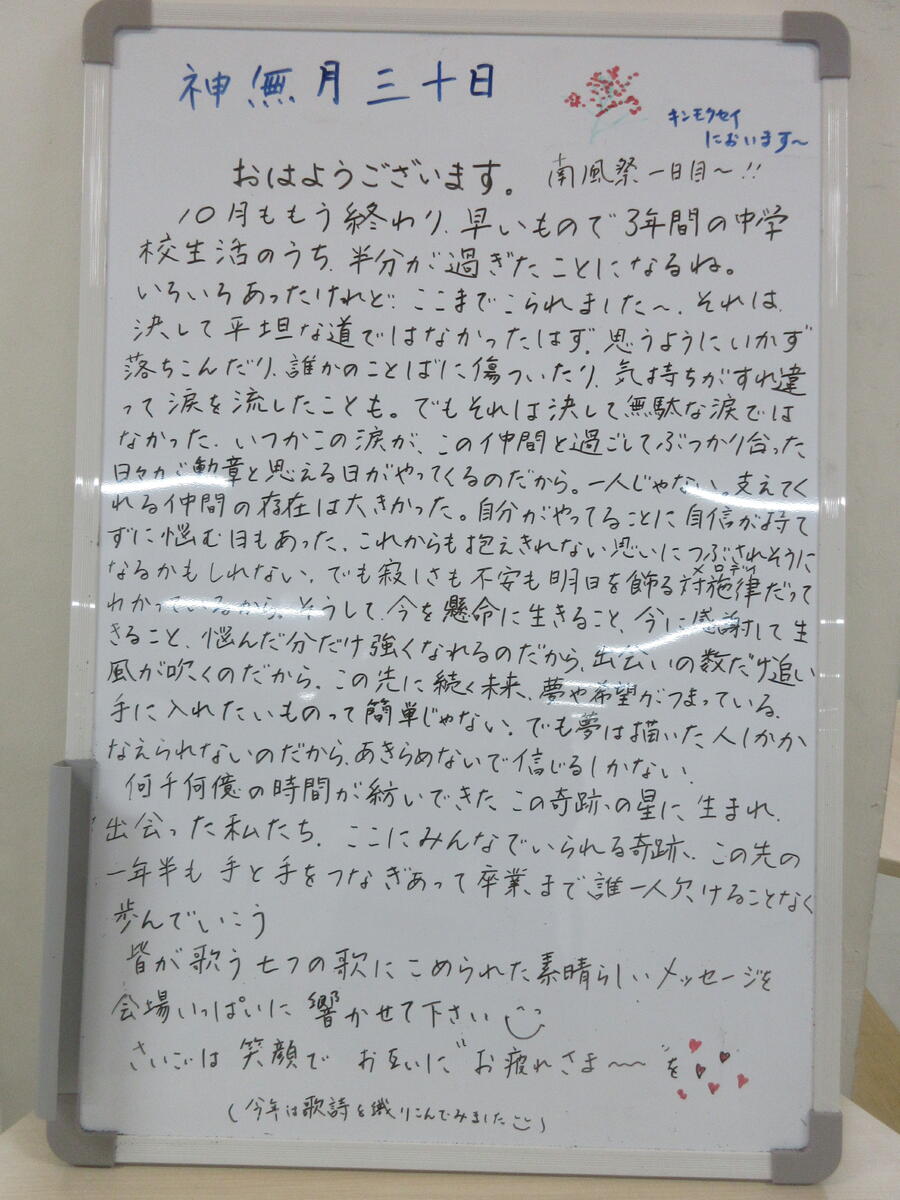 神無月三十日
キンモクセイ
においます〜
おはようございます。 南風祭一日目〜!!
10月ももう終わり、早いもので3年間の中学
校生活のうち、半分が過ぎたことになるね。
いろいろあったけれど、ここまでこられました〜、それは
決して平坦な道ではなかったはず。思うようにいかず
落ちこんだり、誰かのことばに傷ついたり、気持ちがすれ違
って涙を流したことも。でもそれは決して無駄な涙では
なかった、いつかこの涙が、この仲間と過ごしてぶつかり合った
日々が勲章と思える日がやってくるのだから。一人じゃない。支えてく
れる仲間の存在は大きかった。自分がやってることに自信が持て
ずに悩む日もあった、これからも抱えきれない思いにつぶされそうに
メロディ
なるかもしれない、でも寂しさも不安も明日を飾る旋律だって
わかっているから。そうして、今を懸命に生きること、今に感謝して生
きること、悩んだ分だけ強くなれるのだから、出会いの数だけ追い
風が吹くのだから、この先に続く未来、夢や希望がつまっている、
手に入れたいものって簡単じゃない、でも夢は描いた人しかか
なえられないのだから、あきらめないで信じるしかない、
何千何億の時間が紡いできたこの奇跡の星に生まれ、
出会った私たち、ここにみんなでいられる奇跡、この先の
一年半も手と手をつなぎあって卒業まで誰一人欠けることなく
歩んでいこう
皆が歌う七つの歌にこめられた素晴らしいメッセージを
会場いっぱいに響かせて下さい
さいごは笑顔で お互いに"お疲れさま〜〜"を
(今年は歌詩を織りこんでみました)